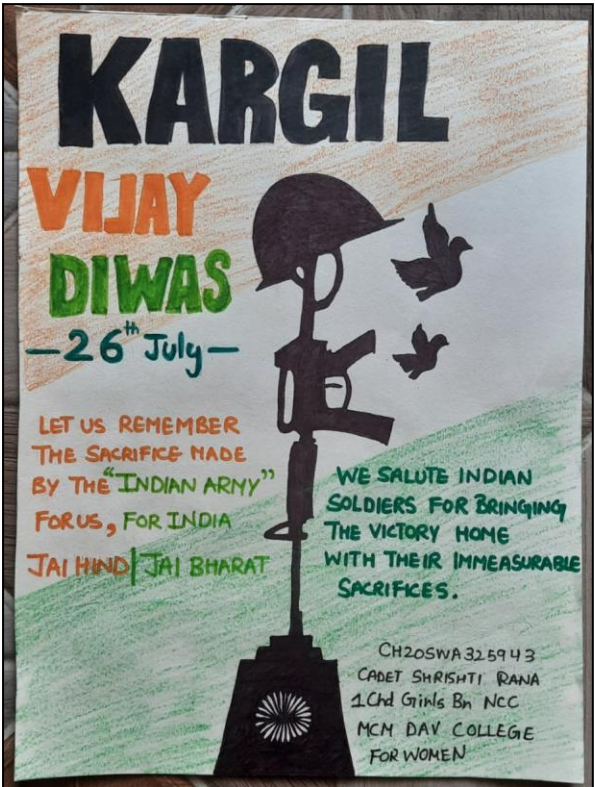 KARGIL
VIJAY
DIWAS
-26th July-
LET US REMEMBER
THE SACRIFICE MADE
BY THE "INDIAN ARMY"
FOR US, FOR INDIA
JAI HIND|JAI BHARAT
WE SALUTE INDIAN
SOLDIERS FOR BRINGING
THE VICTORY HOME
WITH THEIR IMMEASURABLE
SACRIFICES.
CH20SWA325943
CADET SHRISHTI RANA
1Chd Girls Bn NCC
MCM DAV COLLEGE
FOR WOMEN